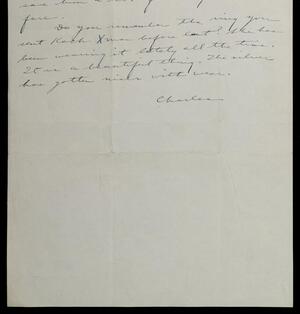 fore.
Do you remember the ring you
sent Kach Xmas before last? She has
been wearing it lately all the time.
It is a beautiful thing. The silver
has gotten nicer with wear.
Charles